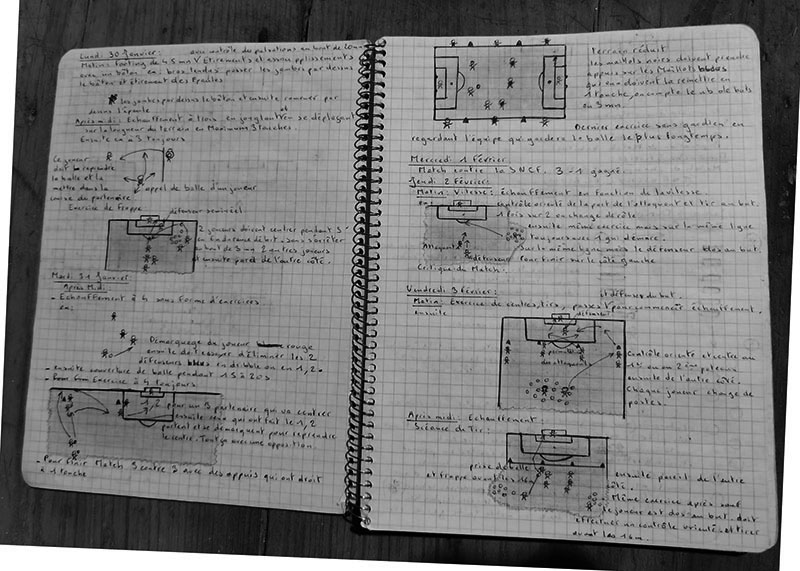 Lundi 30 Janvier: avec contrôle des pulsations en bout de 20mn
Matin: Footing de 45 mn V Etirements et assouplissements
avec un bâton en: bras tendus passer les jambes par dessus
le bâton et étirement des Epaules
les jambes par dessus le bâton et ensuite ramener par
dessus l'épaule
Après midi: Echauffement à trois, en jonglant et en se déplaçant
sur la longueur du terrain en Maximum 3 touches.
Ensuite en à 3 toujours
Ce joueur
doit la reprendre
la balle et la
mettre dans la
course du partenaire
appel de balle d'un joueur
Exercice de Frappe
défenseur
2 joueurs doivent centrer pendant 5'
en Endurance début, sans s'arrêter
au bout de 5 mn 2 autres joueurs
et ensuite pareil de l'autre côté.
Mardi 31 Janvier
Après Midi
- Echauffement à 4 sous forme d'exercices.
en:
Démarquage du joueur rouge
ensuite doit essayer d'éliminer les 2
défenseurs bleus en dribble ou en 1, 2.
- ensuite couverture de balle pendant 15 à 20s
- Pour Exercice à 4 toujours
1, 2 pour un 3 partenaire qui va centrer
ensuite ceux qui ont fait le 1, 2
partent et se démarquent pour reprendre
le centre. Tout ça avec une opposition.
- Pour finir Match 3 contre 3 avec des appuis qui ont droit
à 1 touche
terrain réduit
les maillots noirs doivent prendre
appui sur les Maillots bleus
qui eux doivent la remettre en
1 touche, on compte le nb de buts
en 5 mn.
Dernier exercice sans gardien en
regardant l'équipe qui gardera la balle le plus longtemps.
Mercredi 1 Février
Match contre la SNCF. 3 - 1 gagné.
Jeudi 2 Février:
Matin: Vitesse: échauffement en fonction de la vitesse
en: contrôle orienté de la part de l'attaquant et tir au but.
1 fois sur 2 on change de rôle.
ensuite même exercice mais sur la même ligne
toujours avec 1 défenseur.
- Sur la même ligne mais le défenseur dos au but.
- Pour finir sur le côté gauche
Attaquant
défenseur
Critique du Match.
Vendredi 3 Février:
et défenses du but.
Matin: Exercice de centres, tirs, passes pour commencer échauffement.
ensuite
défenseur
premier
attaquant
Contrôle orienté et centre au
1er ou au 2ème poteau
ensuite de l'autre côté.
Chaque joueur change de
postes.
Après midi: Echauffement:
Séance de Tir:
prise de balle
et frappe avant les 16m
ensuite pareil de l'autre
côté.
- Même exercice après sauf
le joueur est dos au but, doit
effectuer un contrôle orienté et tirer
avant les 16m.